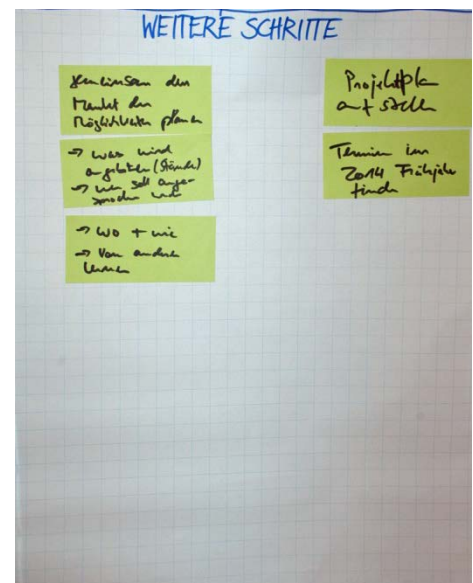 WEITERE SCHRITTE
Gemeinsam den
Markt der
Möglichkeiten planen
→ was wird
angeboten (Stände)
→ wer soll ange-
sprochen werden
→ wo + wie
→ Von anderen
lernen
Projektplan
aufstellen
Termin im
2014 Frühjahr
finden